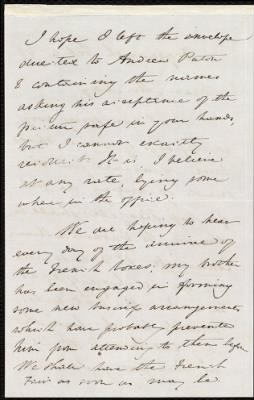 I hope I left the envelope
directed to Andrew Paton
& containing the names
asking his acceptance of the
picture safe in your hands,
but I cannot exactly
recollect. It is, I believe
at any rate, lying some
where in the office.
We are hoping to hear
every day of the arrival of
the French boxes; my brother
has been engaged in forming
some new business arrangements
which have probably prevented
him from attending to them before
We shall have the French
Fair as soon as may be